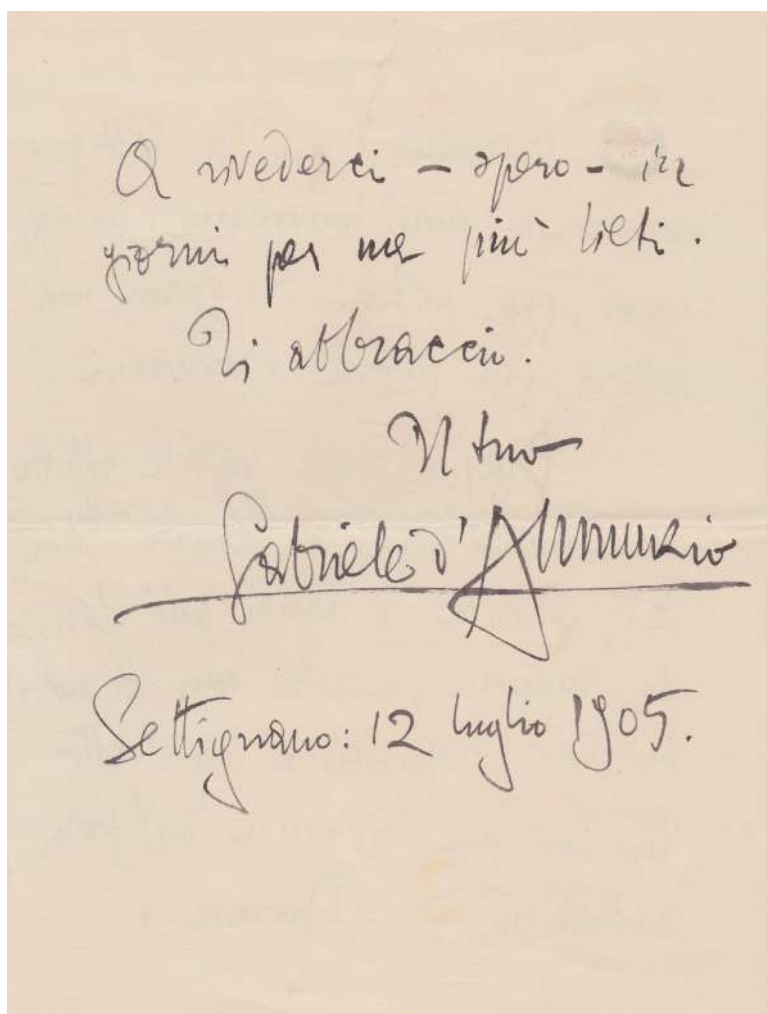 A rivederci – spero – in
giorni per me più lieti.
Ti abbraccio.
Il tuo
Gabriele d'Annunzio
Settignano: 12 luglio 1905.